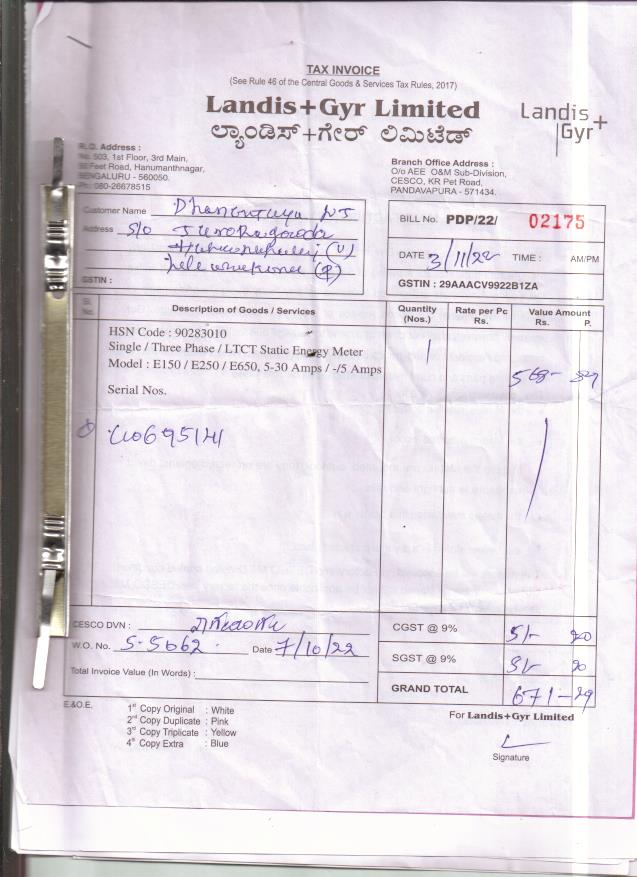 TAX INVOICE
(See Rule 46 of the Central Goods & Services Tax Rules, 2017)
Landis+Gyr Limited
ಲ್ಯಾಂಡಿಸ್+ಗೇರ್ ಲಿಮಿಟೆಡ್
Landis+
Gyr
R.O. Address :
No. 503, 1st Floor, 3rd Main,
Feet Road, Hanumanthnagar,
BENGALURU - 560050.
Ph: 080-26678515
Branch Office Address :
O/o AEE O&M Sub-Division,
CESCO, KR Pet Road,
PANDAVAPURA - 571434.
Customer Name
Address S/o
(V)
GSTIN :
BILL No. PDP/22/ 02175
DATE 3/11/22 TIME : AM/PM
GSTIN : 29AAACV9922B1ZA
Sl. No. Description of Goods / Services Quantity (Nos.) Rate per Pc Rs. Value Amount Rs. P.
HSN Code : 90283010
Single / Three Phase / LTCT Static Energy Meter 1
Model : E150 / E250 / E650, 5-30 Amps / -/5 Amps
Serial Nos.
CESCO DVN :
W.O. No. Date 7/10/22
Total Invoice Value (In Words) :
CGST @ 9%
SGST @ 9%
GRAND TOTAL 671-29
E.&O.E.
1st Copy Original : White
2nd Copy Duplicate : Pink
3rd Copy Triplicate : Yellow
4th Copy Extra : Blue
For Landis+Gyr Limited
Signature